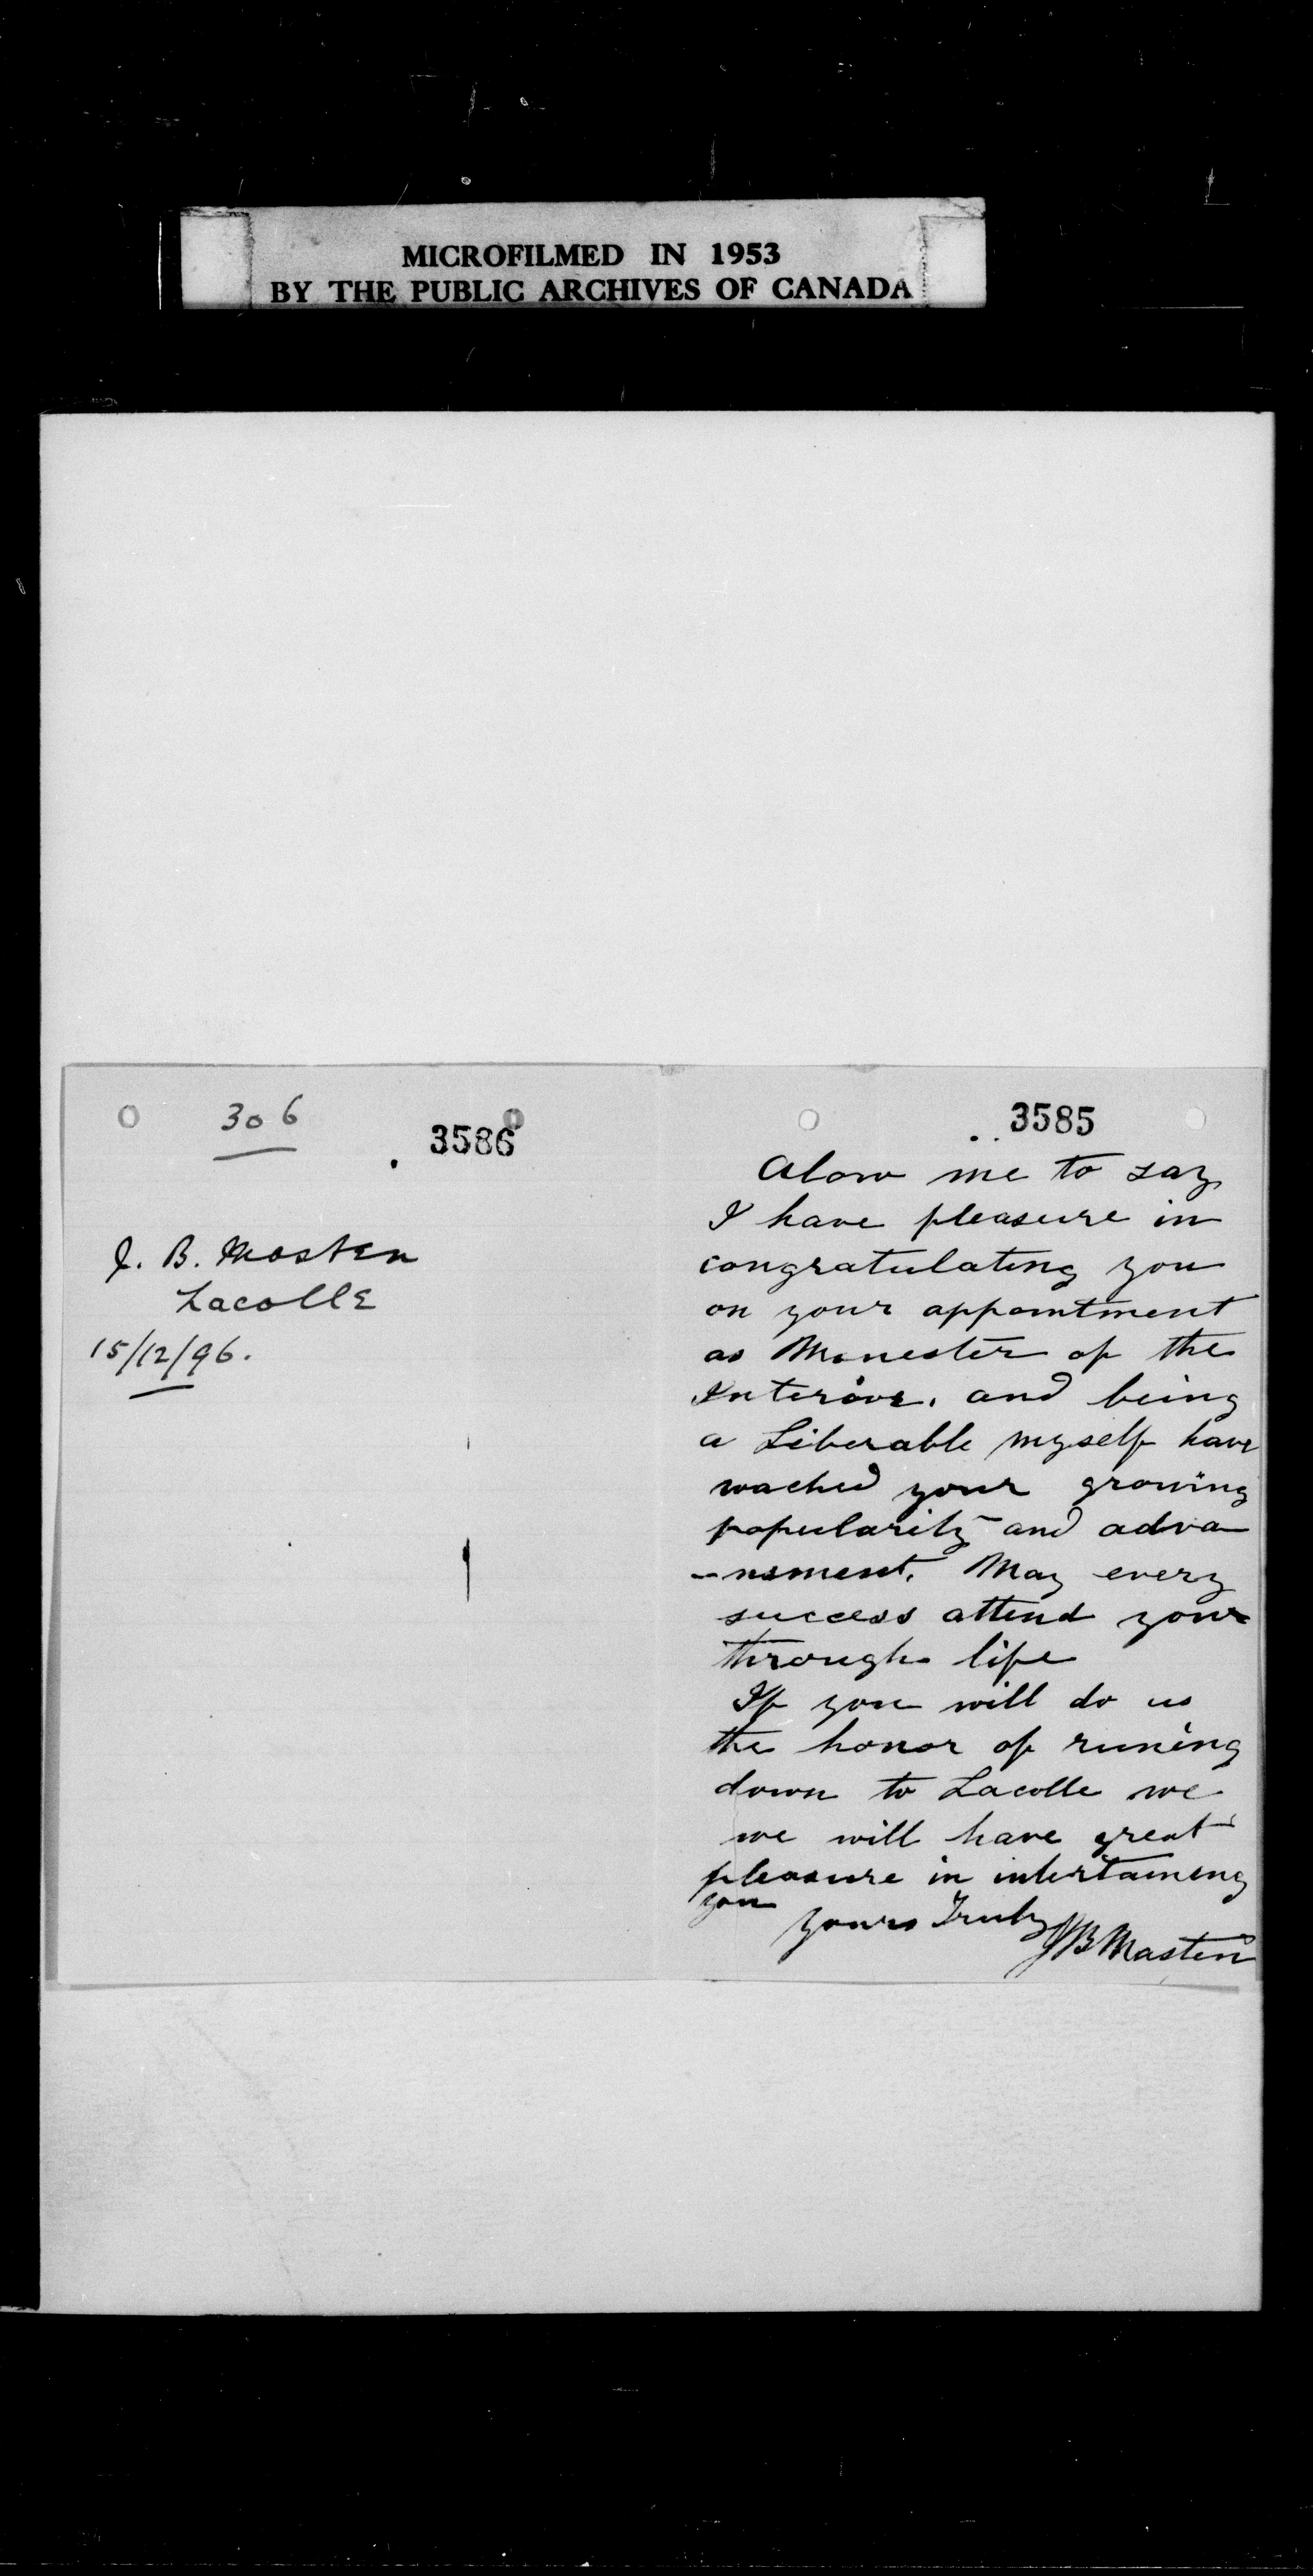 MICROFILMED IN 1953
BY THE PUBLIC ARCHIVES OF CANADA
306
3586
J. B. Masten
Lacolle
15/12/96.
3585
Alow me to say
I have pleasure in
congratulating you
on your appointment
as Minester of the
Interior. and being
a Liberable myself have
wached your growing
popularity and adva
-nsment. May every
success attend your
through life
If you will do us
the honor of runing
down to Lacolle we
we will have great
pleasure in intertaineng
you
Yours Truly
JB Masten